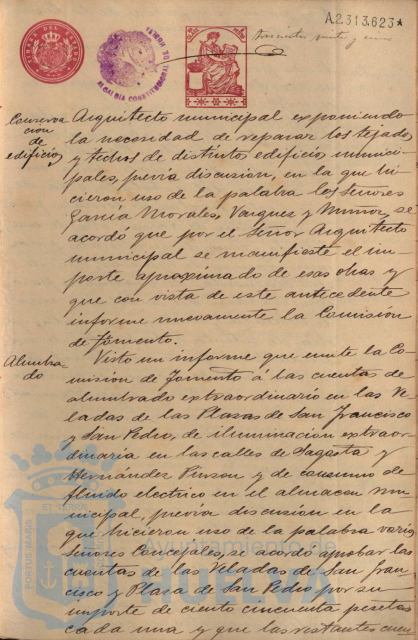 A.2313.623*
TIMBRE DEL ESTADO
ALCALDIA CONSTITUCIONAL DE HUELVA
Conserva
cion
de
edificios
Arquitecto municipal exponiendo
la necesidad de reparar los tejados
y techos de distintos edificios munici-
pales, previa discusion, en la que hi-
cieron uso de la palabra los Señores
Garcia Morales, Vazquez y Muñoz, se
acordó que por el Señor Arquitecto
municipal se manifieste el im-
porte aproximado de esas obras y
que con vista de este antecedente
informe nuevamente la Comision
de Fomento.
Alumbra-
do
Visto un informe que emite la Co-
mision de Fomento á las cuentas de
alumbrado extraordinario en las Ve-
ladas de las Plazas de San Francisco
y San Pedro, de iluminacion extraor-
dinaria en las calles de Sagasta y
Hernández Pinzon y de consumo de
fluido electrico en el almacen mu-
nicipal, previa discusion en la
que hicieron uso de la palabra varios
Señores Concejales, se acordo aprobar las
cuentas de las Veladas de San Fran-
cisco y Plaza de San Pedro por su
importe de ciento cincuenta pesetas
cada una y que las restantes cuen
PORTUS MARIS
Ayuntamiento de
Huelva